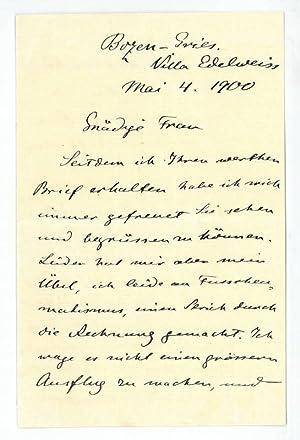 Bozen-Gries.
Villa Edelweiss
Mai 4. 1900
Gnädige Frau
Seitdem ich Ihren werthen
Brief erhalten habe ich mich
immer gefreuet Sie sehen
und begrüssen zu können.
Leider hat mir aber mein
Übel, ich leide an
einen Strich durch
die Rechnung gemacht. Ich
wage es nicht einen grössern
Ausflug zu machen, und